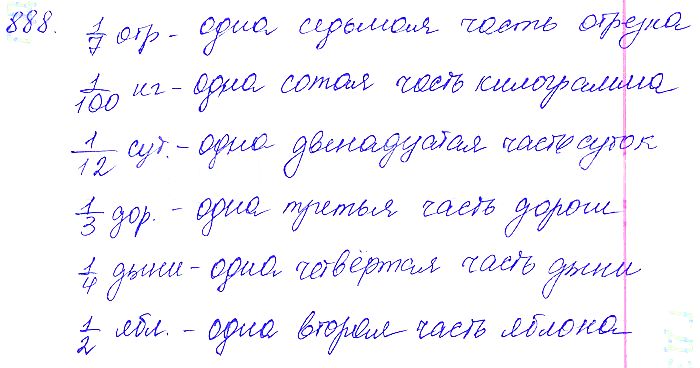 888. 1/7 отр - одна седьмая часть отрезка
1/100 кг - одна сотая часть килограмма
1/12 сут. - одна двенадцатая часть суток
1/3 дор. - одна третья часть дороги
1/4 дыни - одна четвёртая часть дыни
1/2 ябл. - одна вторая часть яблока